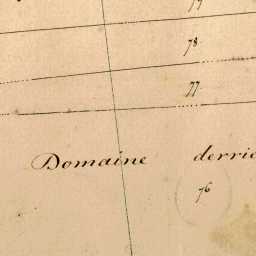 78
77
Domaine derriè
76